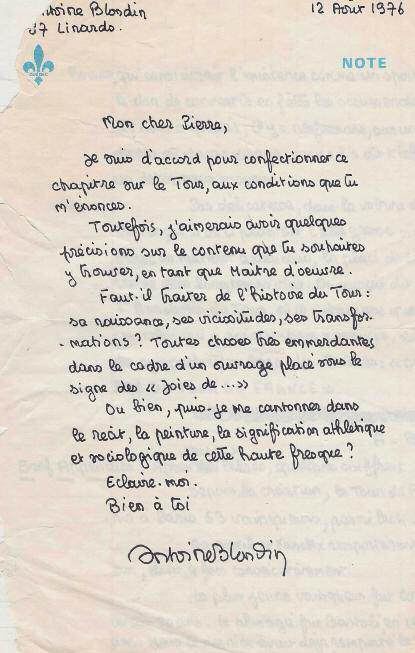 Antoine Blondin
87 Linards.
12 Août 1976
QUÉBEC
NOTE
Mon cher Pierre,
Je suis d'accord pour confectionner ce
chapitre sur le Tour, aux conditions que tu
m'énonces.
Toutefois, j'aimerais avoir quelques
précisions sur le contenu que tu souhaites
y trouver, en tant que Maître d'oeuvre.
Faut-il traiter de l'histoire du Tour :
sa naissance, ses vicissitudes, ses transfor
-mations ? Toutes choses très emmerdantes
dans le cadre d'un ouvrage placé sous le
signe des « Joies de... »
Ou bien, puis-je me cantonner dans
le récit, la peinture, la signification athlétique
et sociologique de cette haute fresque ?
Eclaire-moi.
Bien à toi
Antoine Blondin